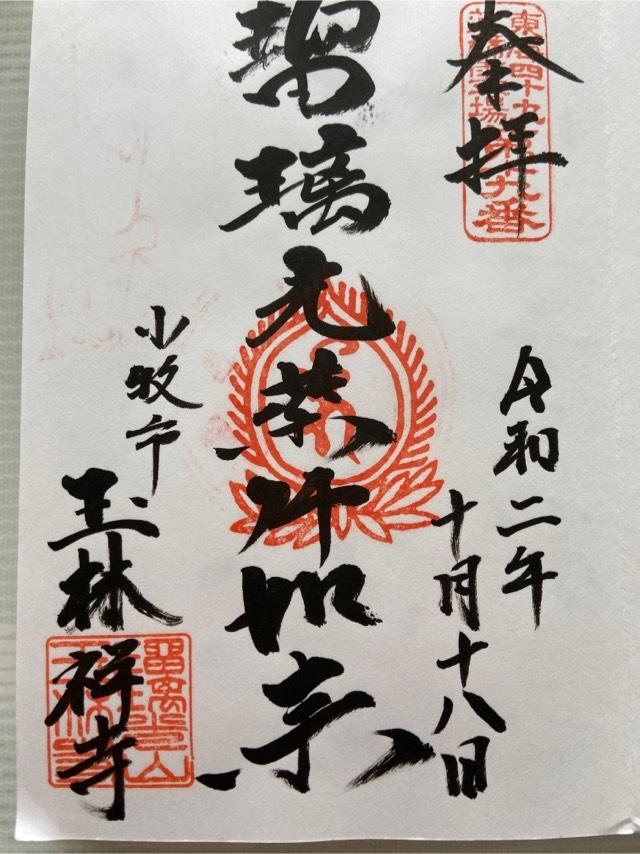 奉拝
東海四十九
薬師霊場第十九番
令和二年
十月十八日
瑠璃光薬師如来
小牧市
玉林祥寺